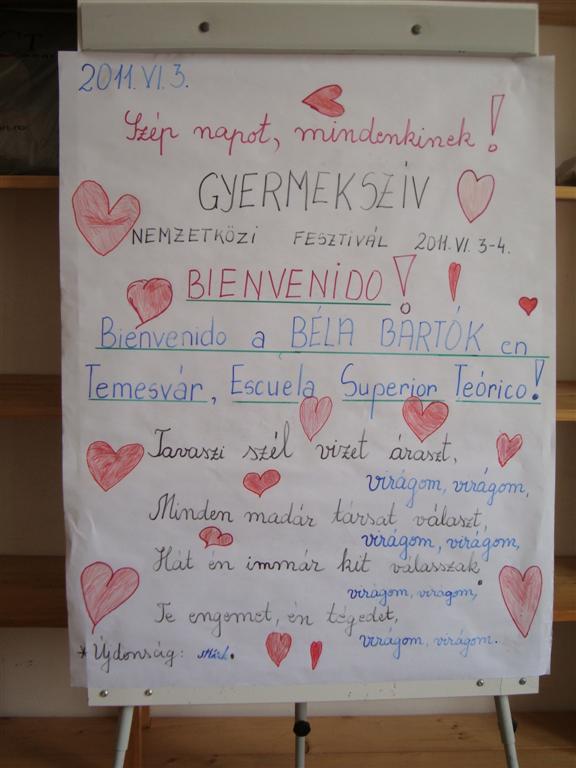 2011.VI.3.
Szép napot, mindenkinek!
GYERMEKSZÍV
NEMZETKÖZI FESZTIVÁL 2011.VI.3-4.
BIENVENIDO!
Bienvenido a BÉLA BARTÓK en
Temesvár, Escuela Superior Teórico!
Tavaszi szél vizet áraszt,
virágom, virágom,
Minden madár társat választ,
virágom, virágom,
Hát én immár kit válasszak
virágom, virágom,
Te engemet, én tégedet,
virágom, virágom.
* Újdonság: